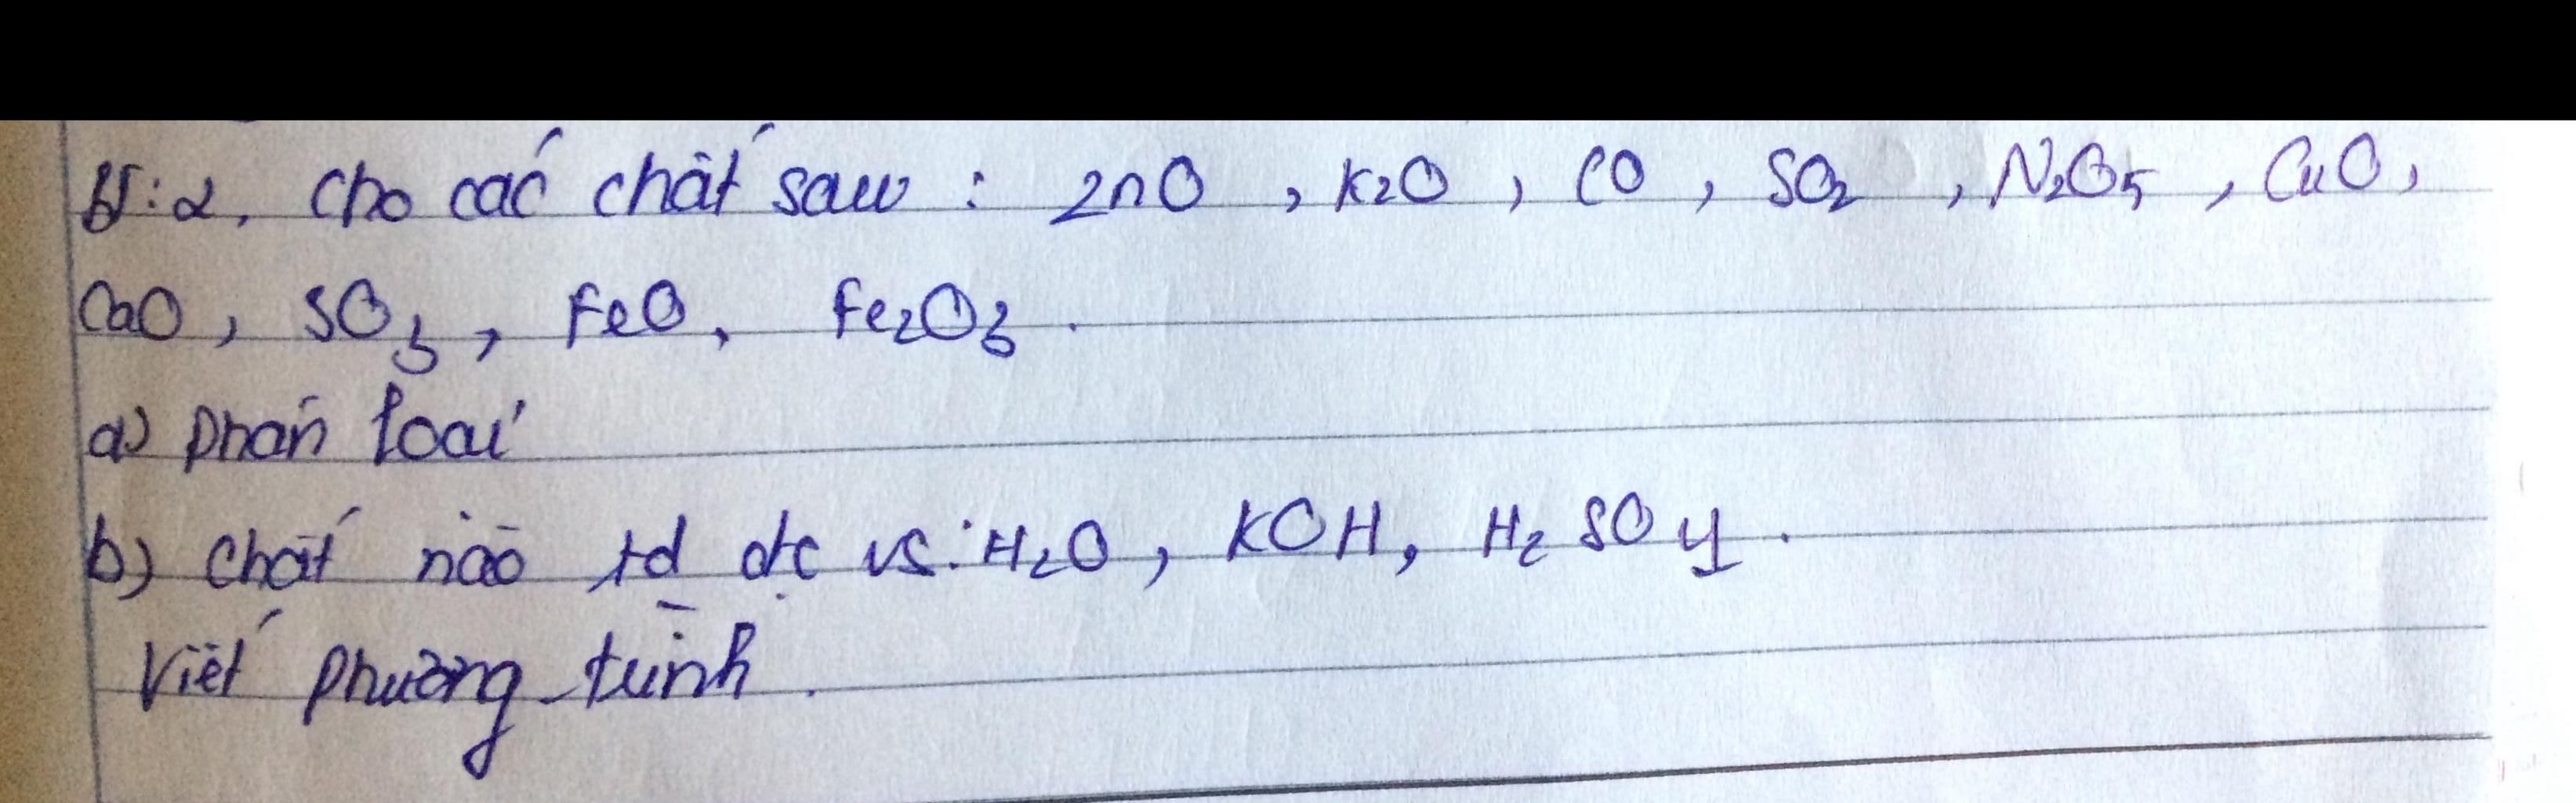 bt:2. Cho các chất sau : ZnO , K2O , CO , SO2 , N2O5 , CuO,
CaO, SO3, FeO, Fe2O3.
a) phân loại
b) chất nào td đc vs: H2O, KOH, H2SO4.
Viết phương trình.